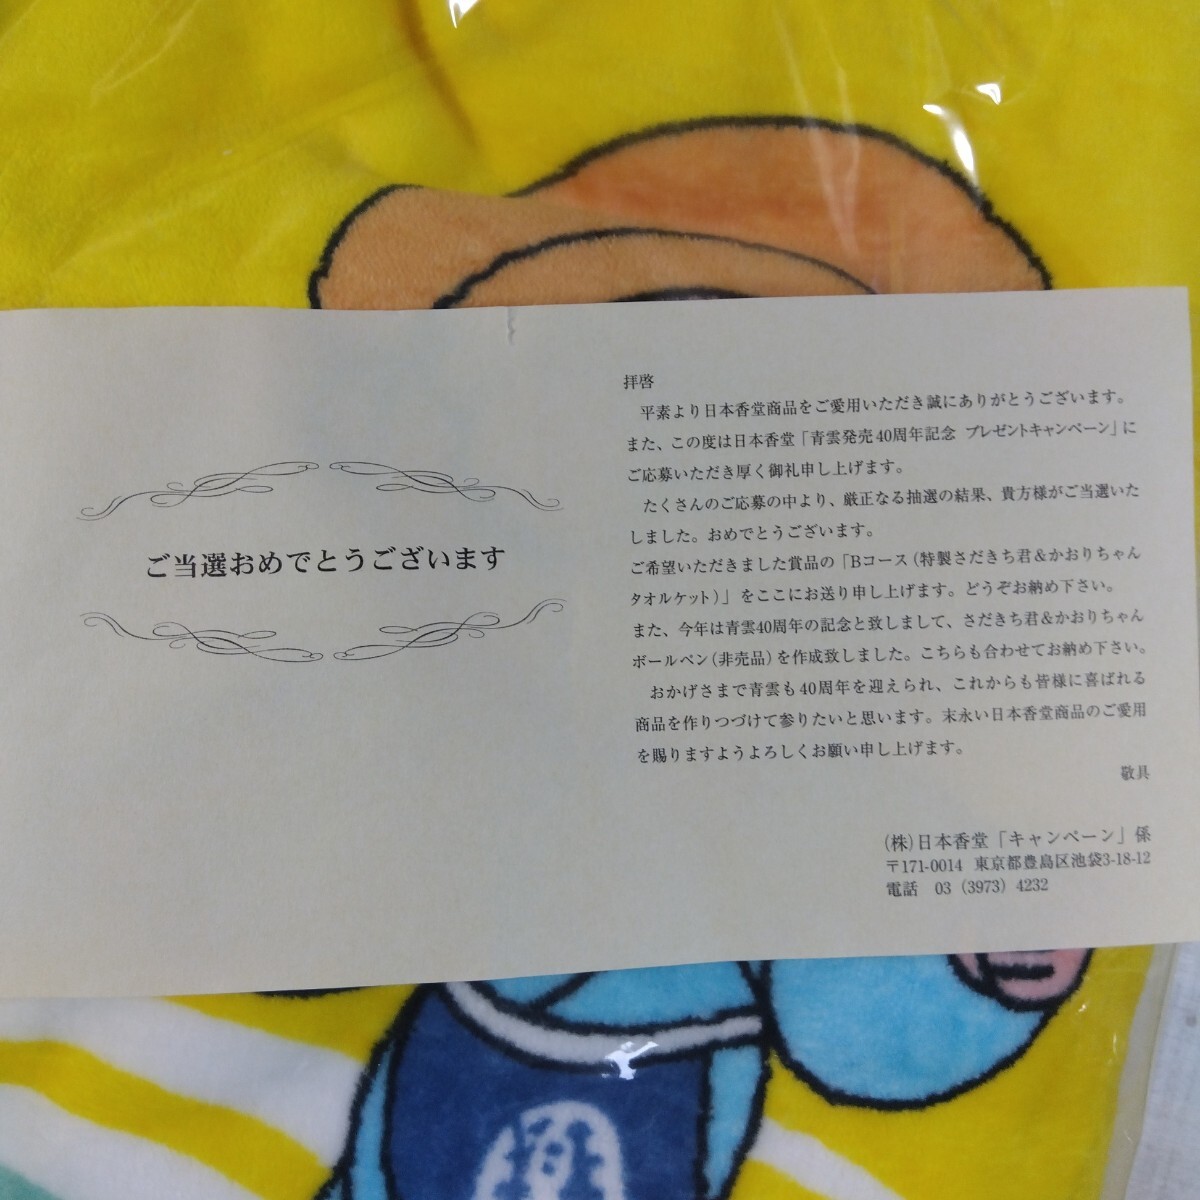 ご当選おめでとうございます
拝啓
平素より日本香堂商品をご愛用いただき誠にありがとうございます。
また、この度は日本香堂「青雲発売40周年記念 プレゼントキャンペーン」に
ご応募いただき厚く御礼申し上げます。
たくさんのご応募の中より、厳正なる抽選の結果、貴方様がご当選いた
しました。おめでとうございます。
ご希望いただきました賞品の「Bコース(特製さだきち君&かおりちゃん
タオルケット)」をここにお送り申し上げます。どうぞお納め下さい。
また、今年は青雲40周年の記念と致しまして、さだきち君&かおりちゃん
ボールペン(非売品)を作成致しました。こちらも合わせてお納め下さい。
おかげさまで青雲も40周年を迎えられ、これからも皆様に喜ばれる
商品を作りつづけて参りたいと思います。末永い日本香堂商品のご愛用
を賜りますようよろしくお願い申し上げます。
敬具
(株)日本香堂「キャンペーン」係
〒171-0014 東京都豊島区池袋3-18-12
電話 03(3973)4232